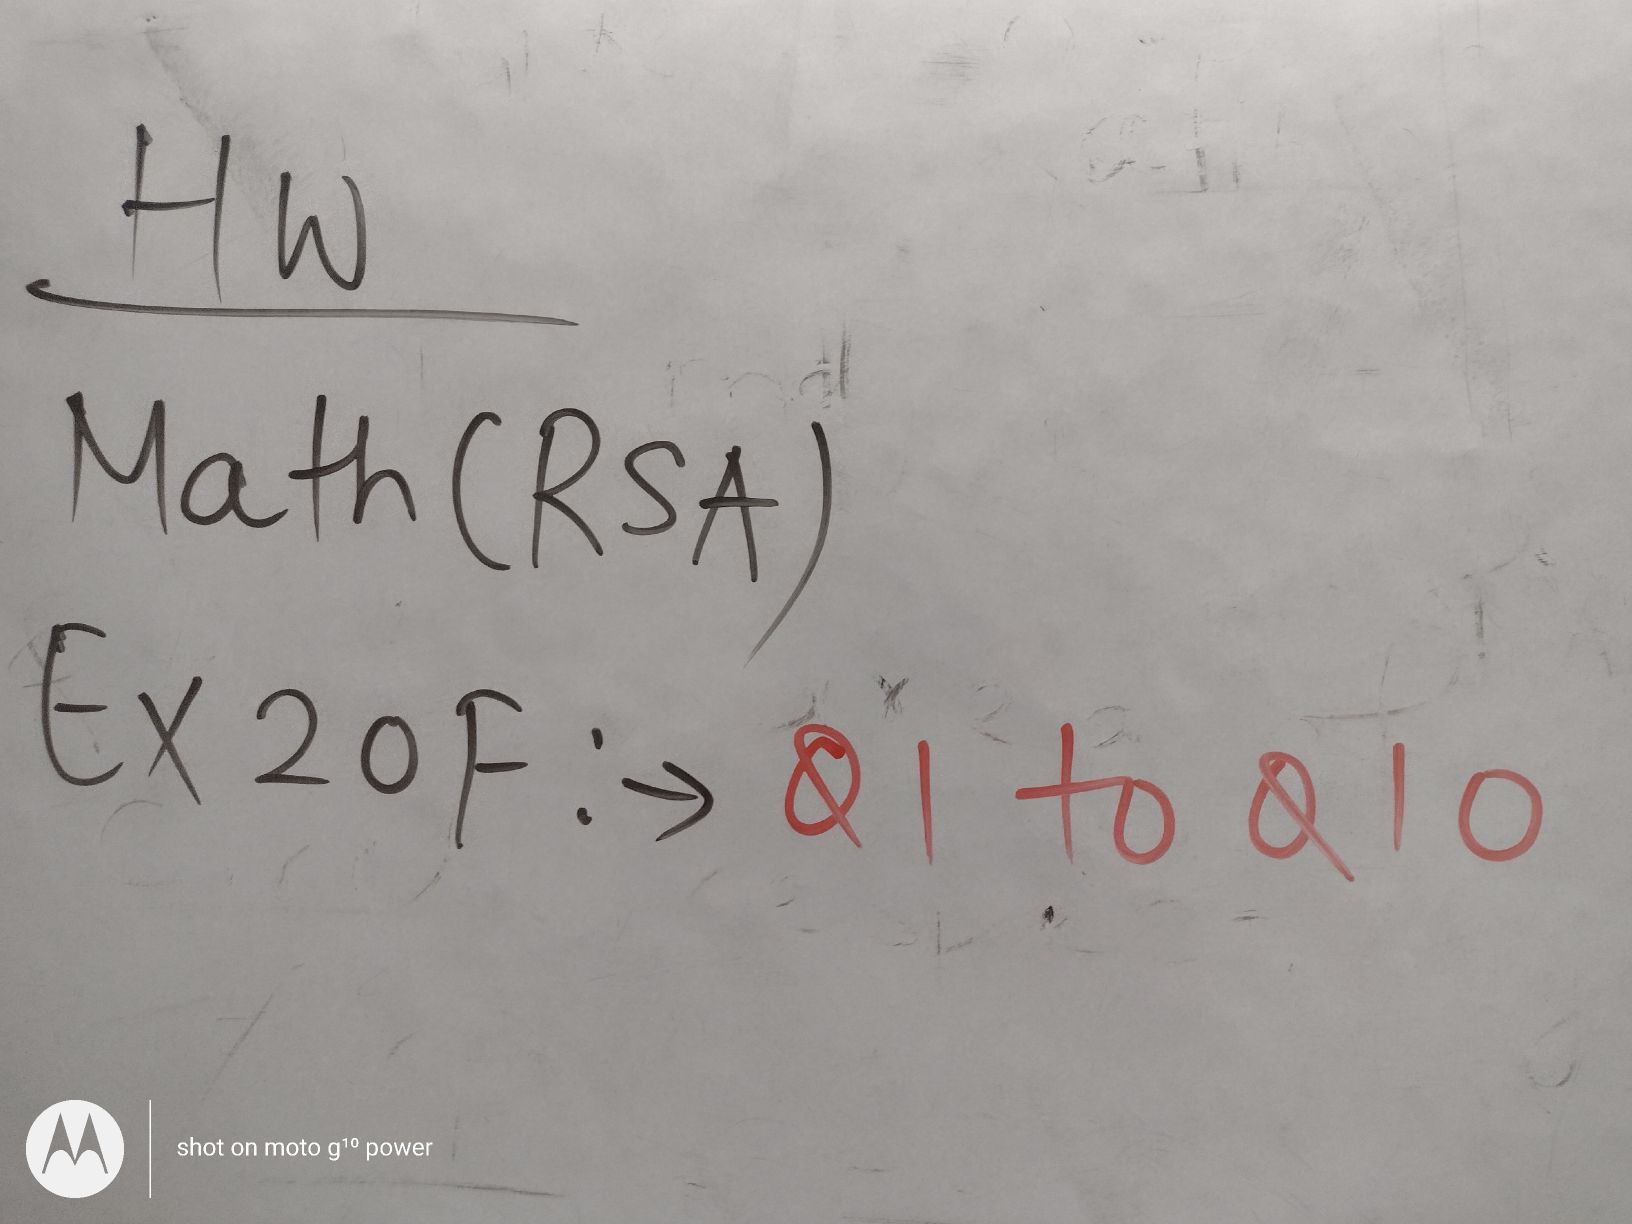 HW
Math (RSA)
Ex 20F :→ Q1 to Q10
shot on moto g¹⁰ power